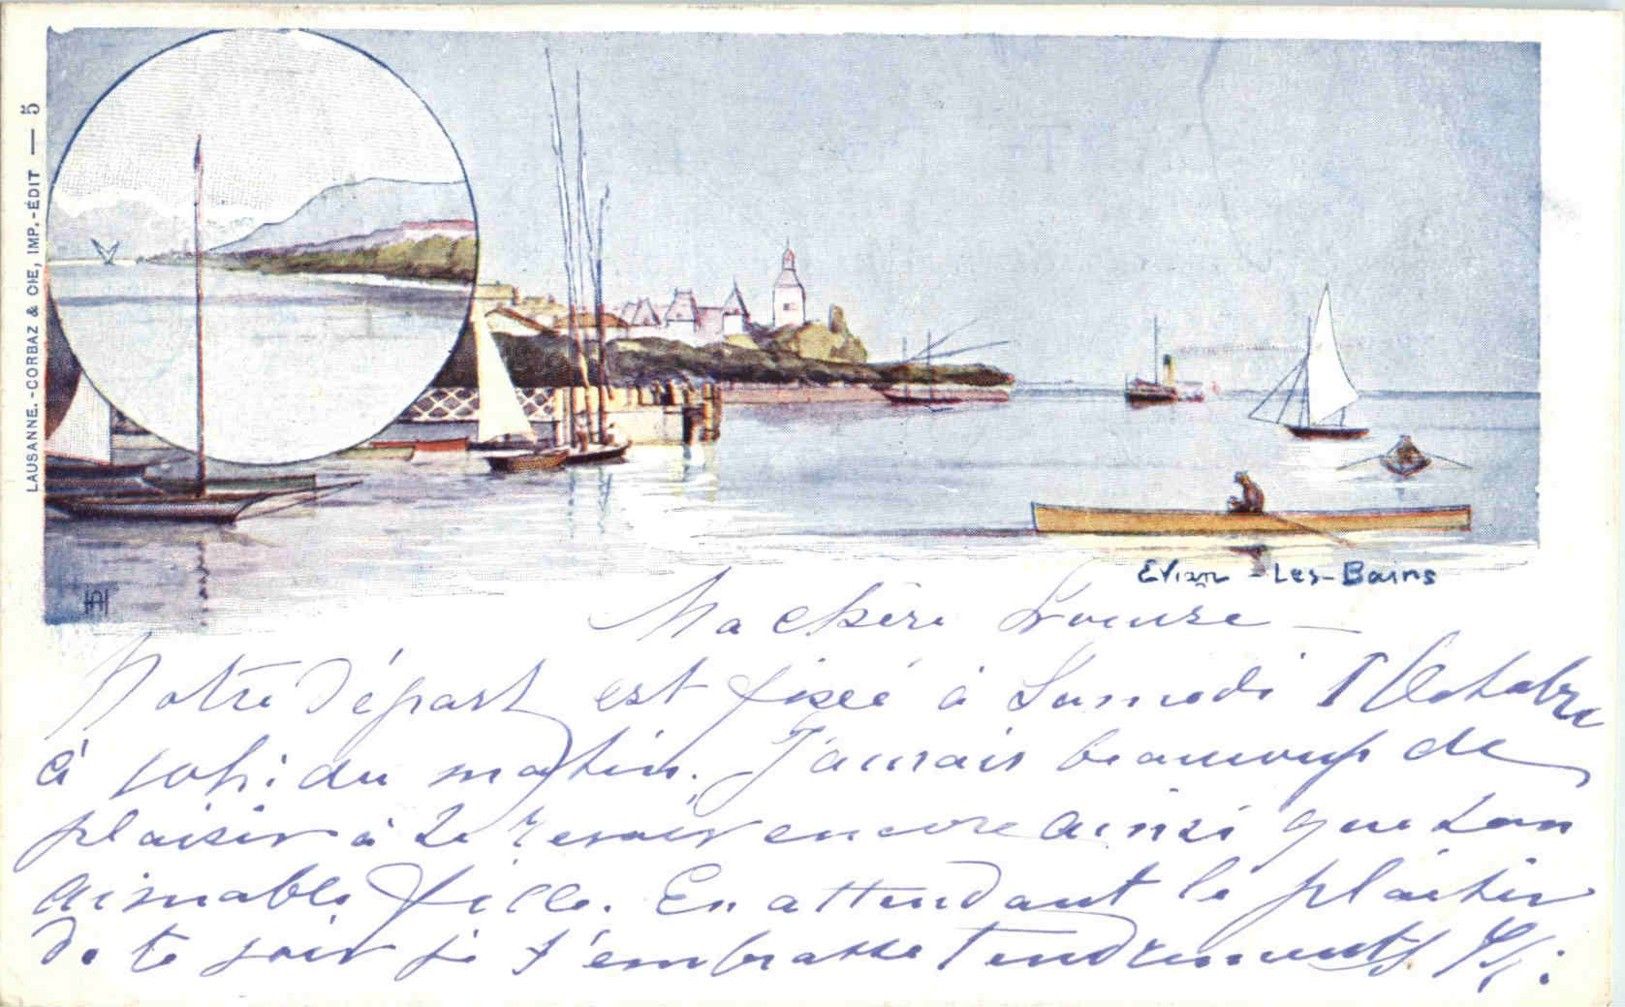 LAUSANNE. - CORBAZ & CIE, IMP.-ÉDIT — 5
Evian - Les - Bains
Ma chère Louise —
Notre départ est fixé à Samedi 1 Octobre
à 10h: du matin. J'aurais beaucoup de
plaisir à te revoir encore ainsi que ton
aimable fille. En attendant le plaisir
de te voir je t'embrasse tendrement